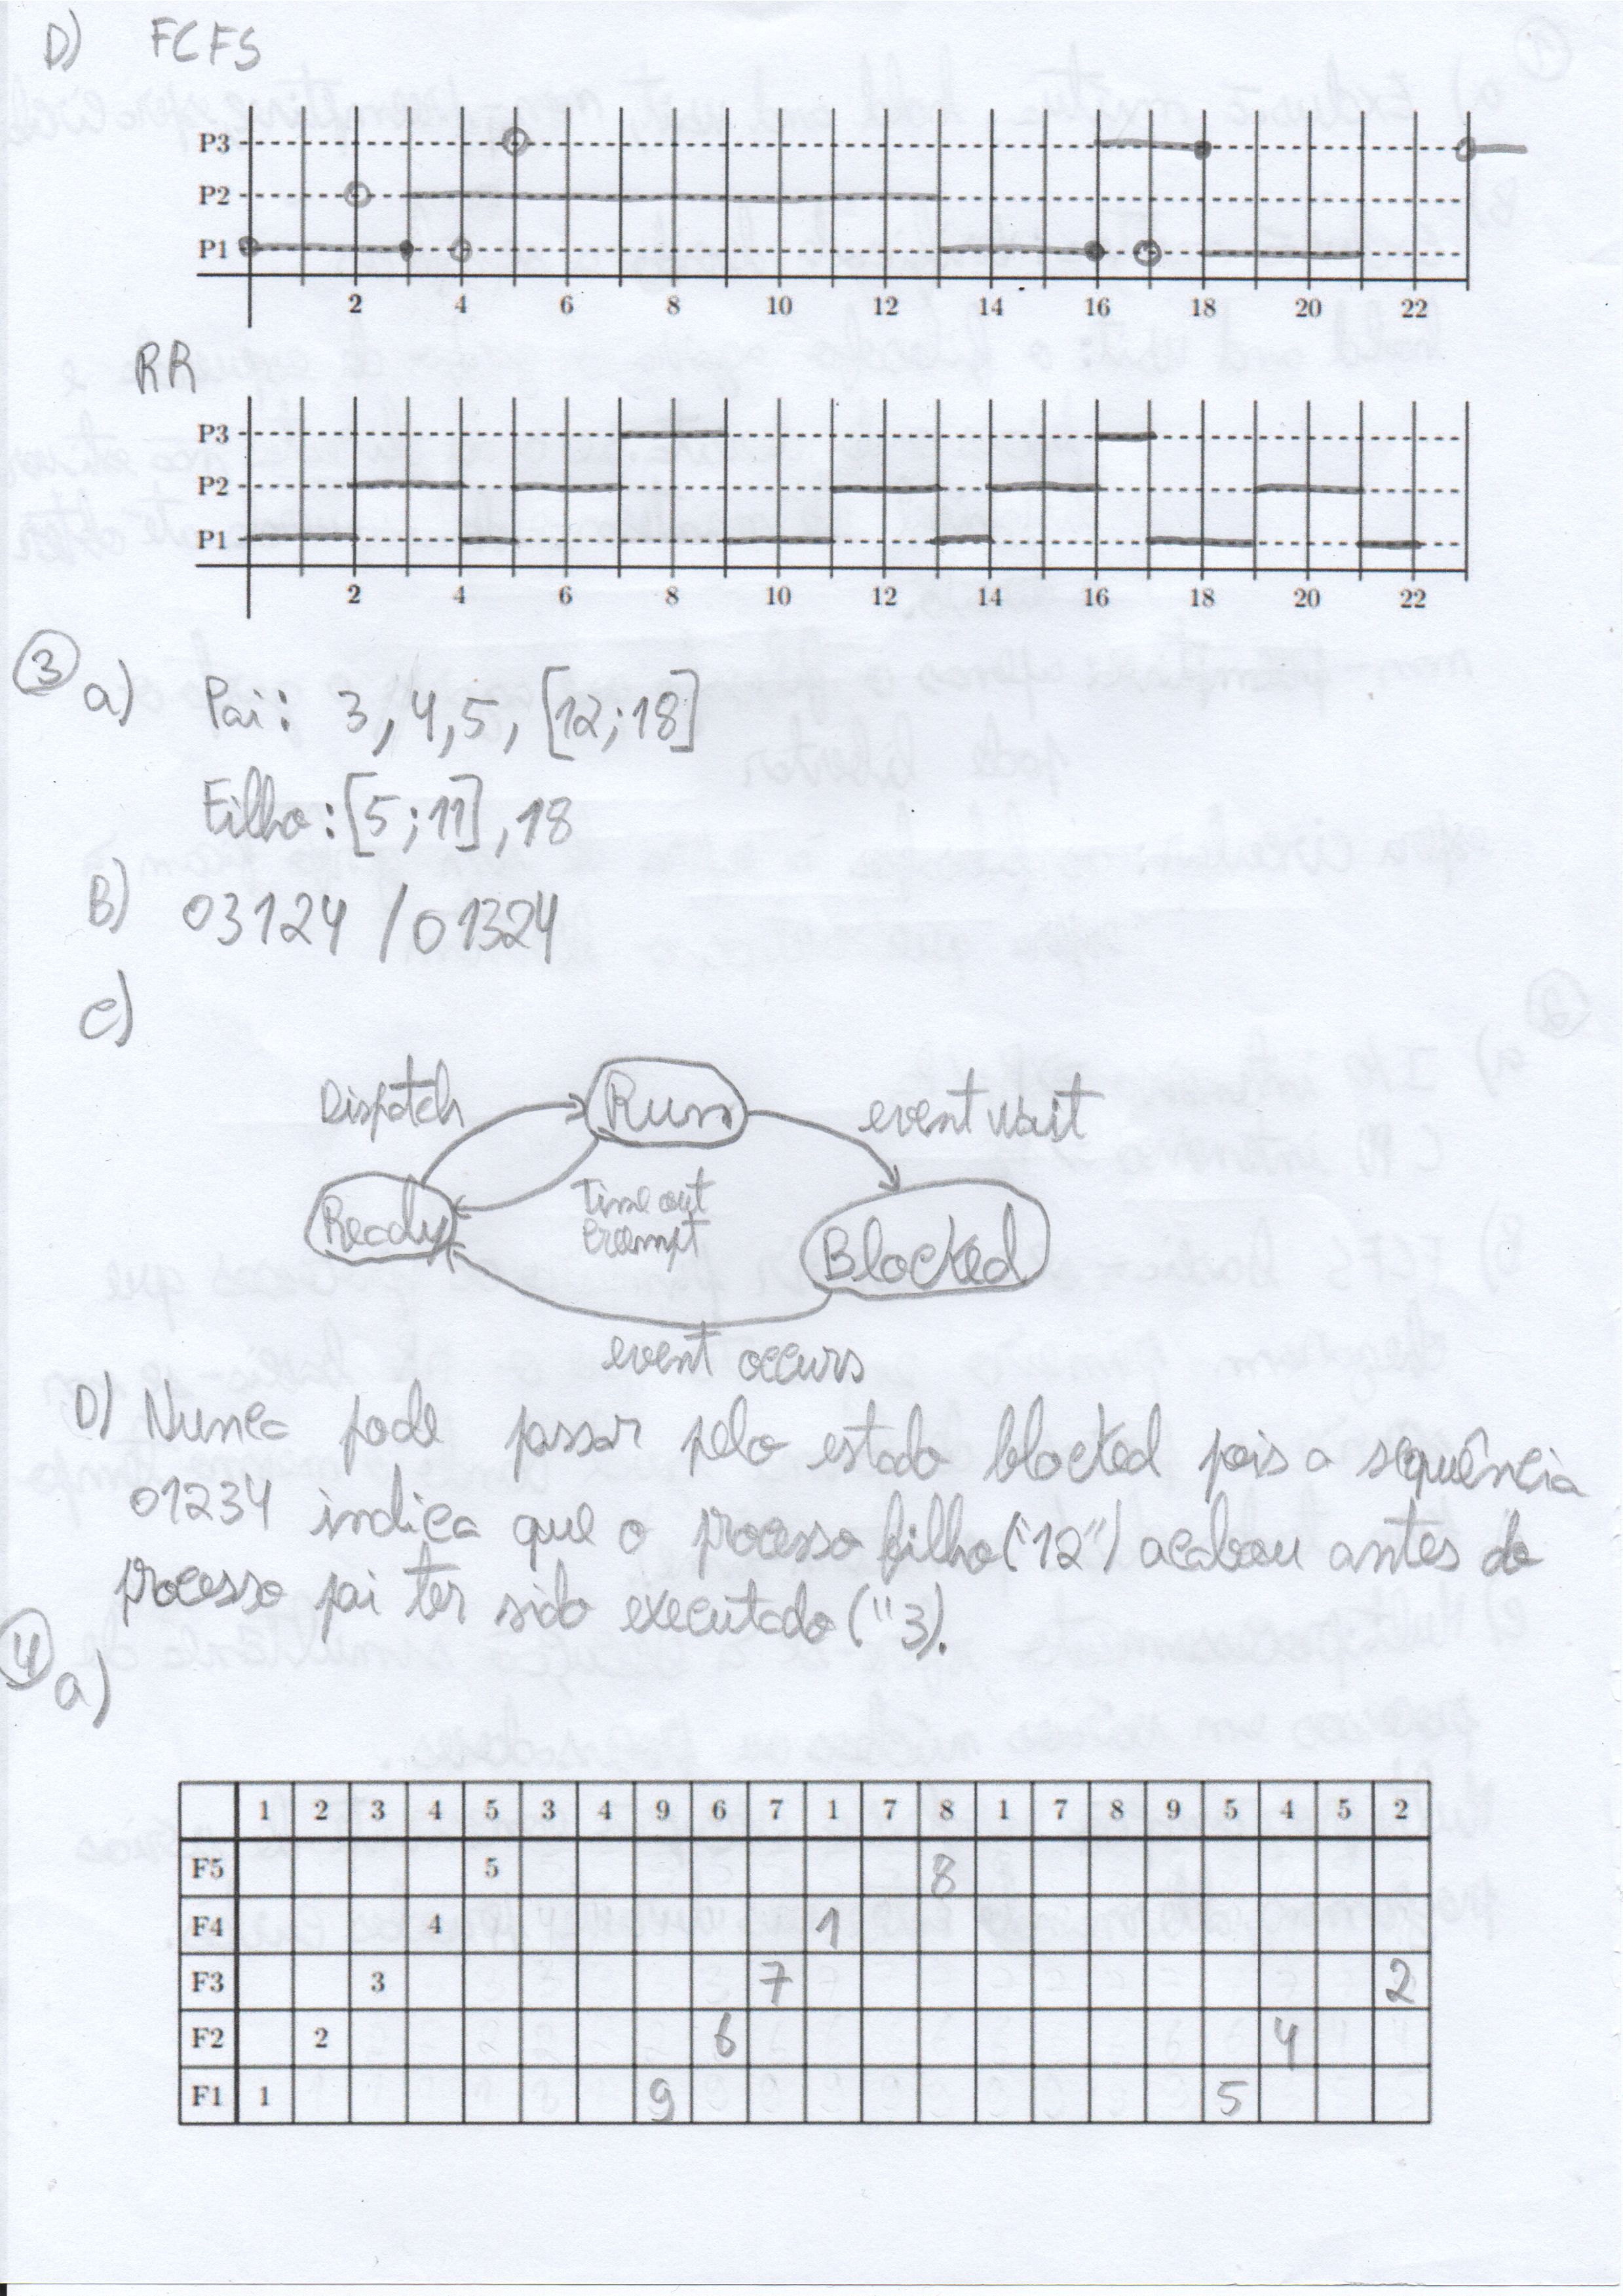 D) FCFS
P3
P2
P1
2 4 6 8 10 12 14 16 18 20 22
RR
P3
P2
P1
2 4 6 8 10 12 14 16 18 20 22
3 a) Pai: 3, 4, 5, [12; 18]
Filho: [5; 11], 18
B) 03124 / 01324
c)
Dispatch Run event wait
Ready Time out Blocked
Preempt
event occurs
D) Nunca pode passar pelo estado blocked pois a sequência
01234 indica que o processo filho ("12") acabou antes do
processo pai ter sido executado ("3).
4 a)
1 2 3 4 5 3 4 9 6 7 1 7 8 1 7 8 9 5 4 5 2
F5 5 8
F4 4 1
F3 3 7 2
F2 2 6 4
F1 1 9 5